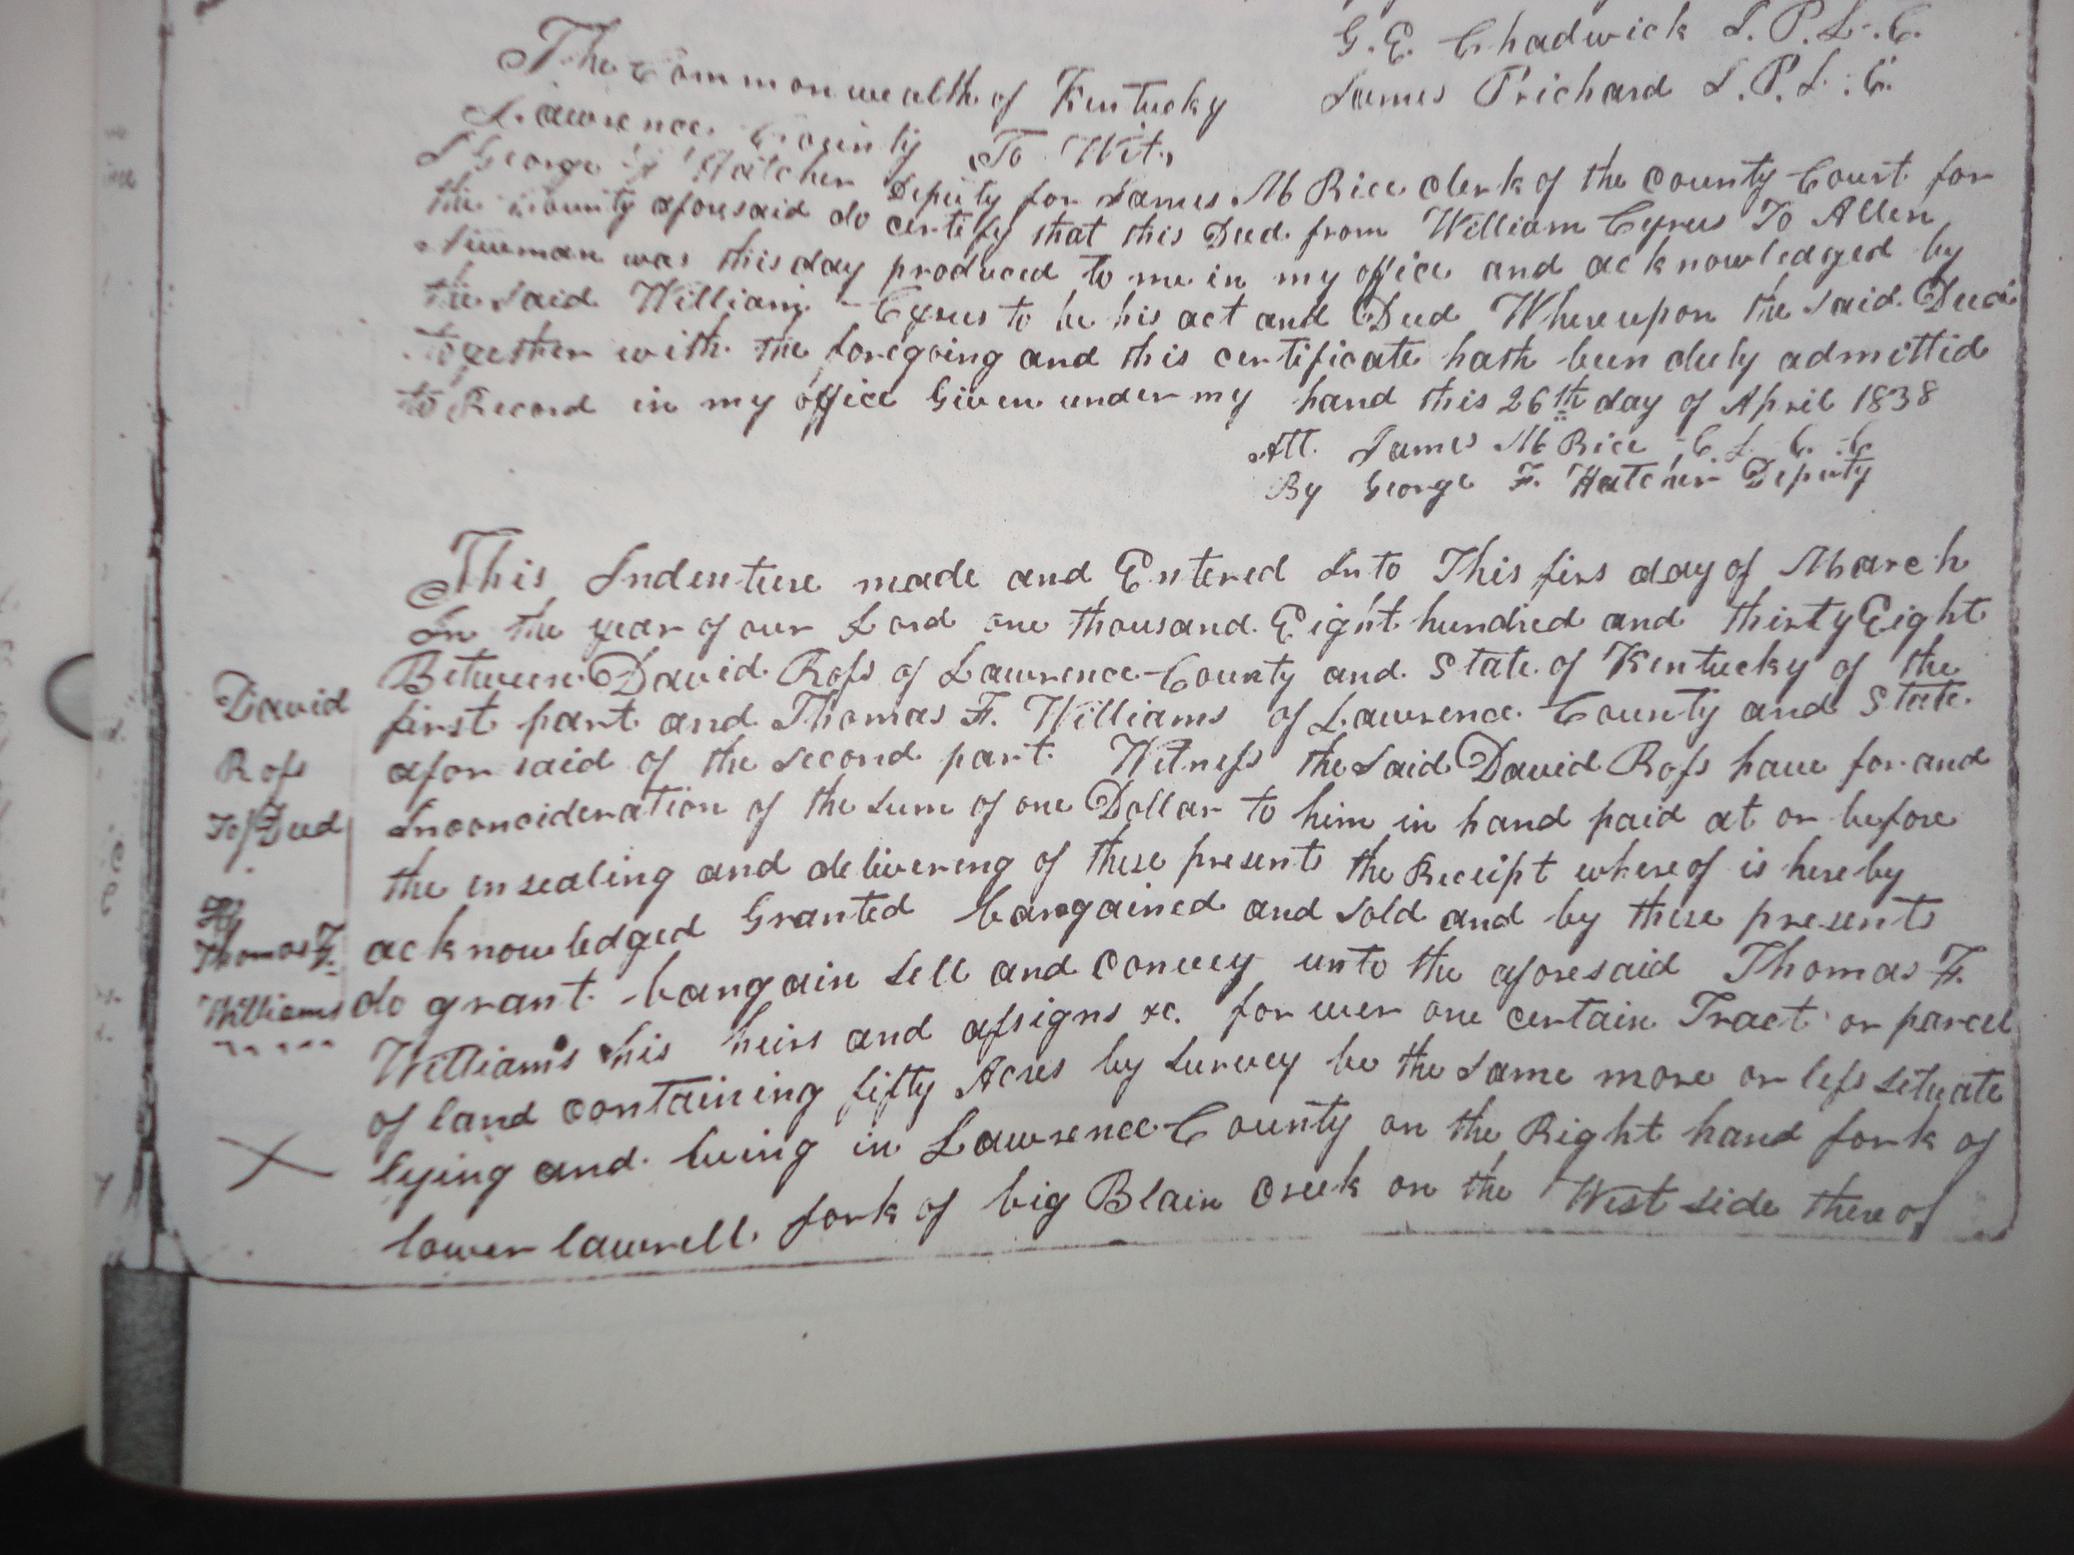 G. E. Chadwick J. P. L. C.
James Prichard J. P. L. C.
The Commonwealth of Kentucky
Lawrence County To Wit,
I George F Hatcher Deputy for James M Rice clerk of the county Court for
the County aforesaid do certify that this Deed from William Cyrus To Allen
Newman was this day produced to me in my office and acknowledged by
the said William Cyrus to be his act and Deed Whereupon the said Deed
together with the foregoing and this certificate hath been duly admittid
to Record in my office Given under my hand this 26th day of April 1838
Att. James M Rice C. L. C. C
By George F. Hatcher Deputy
This Indenture made and Entered Into This firs day of March
In the year of our Lord one thousand Eight hundred and thirty Eight
Between David Ross of Lawrence County and State of Kentucky of the
first part and Thomas F. Williams of Lawrence County and State
afor said of the second part Witness the said David Ross have for and
Inconcideration of the sum of one Dollar to him in hand paid at or before
the ensealing and delivering of these presents the Receipt where of is hereby
acknowledged Granted bargained and sold and by these presents
do grant bargain sell and convey unto the aforesaid Thomas F.
Williams his heirs and assigns &c. for ever one certain Tract or parcel
of land containing fifty Acres by survey be the same more or less situate
lying and being in Lawrence County on the Right hand fork of
lower lawrell fork of big Blain creek on the West side there of
David
Ross
To/Deed
Thomas F.
Williams
X